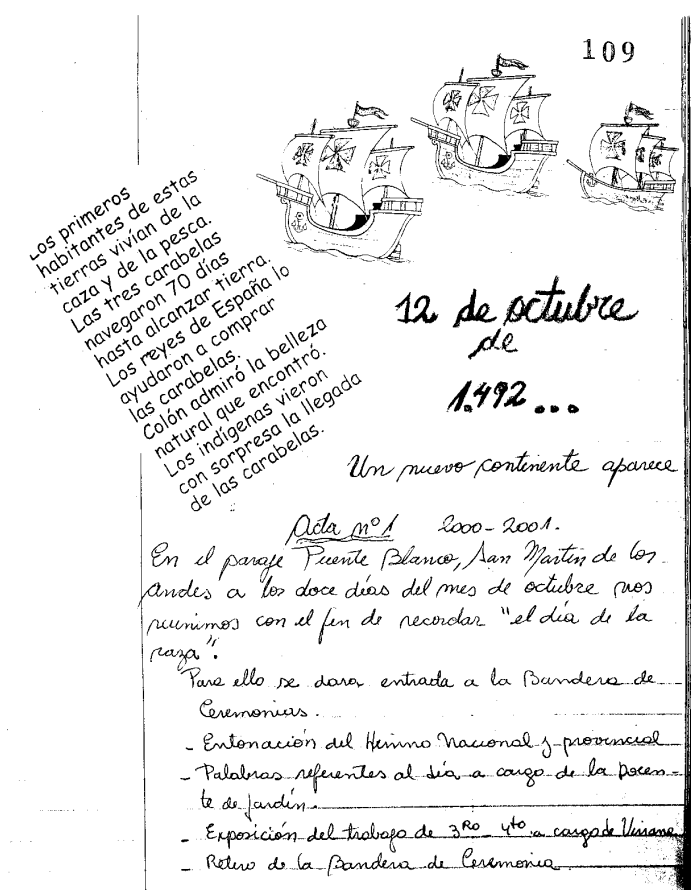 109
Los primeros
habitantes de estas
tierras vivían de la
caza y de la pesca.
Las tres carabelas
navegaron 70 días
hasta alcanzar tierra.
Los reyes de España lo
ayudaron a comprar
las carabelas.
Colón admiró la belleza
natural que encontró.
Los indígenas vieron
con sorpresa la llegada
de las carabelas.
12 de octubre
de
1.492...
Un nuevo continente aparece
Acta nº 1 2000-2001.
En el paraje Puente Blanco, San Martin de los
Andes a los doce días del mes de octubre nos
reunimos con el fin de recordar "el día de la
raza".
Para ello se dara entrada a la Bandera de
Ceremonias.
- Entonación del Himno Nacional y provincial
- Palabras referentes al día a cargo de la Docen-
te de Jardín.
- Exposición del trabajo de 3Ro - 4to a cargo de Viviana
- Retiro de la Bandera de Ceremonia